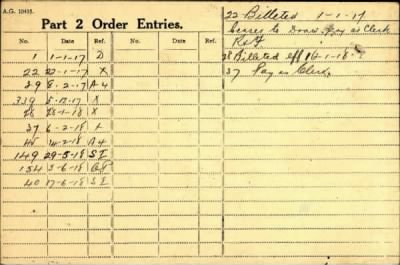 A.G. 10435.
Part 2 Order Entries.
No. Date Ref. No. Date Ref. No. Date Ref.
1 1-1-17 D
22 22-1-17 X
39 8-2-17 A4
339 5-12-17 X
28 28-1-18 X
37 6-2-18
14-2-18 A4
149 29-5-18 SI
154 3-6-18
40 17-6-18 SI
22 Billeted 1-1-17
Ceases to draw Pay as Clerk
28 Billeted eff 16-1-18
37 Pay as Clerk.